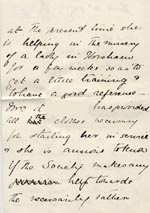 at the present time she
is helping in the nursery
of a lady in Horsham
for a few weeks so as to
get a little training &
to have a good reference
for it has provided
all the clothes necessary
for starting her in service
& she is anxious to know
if the Society make any
help towards
the necessarily rather